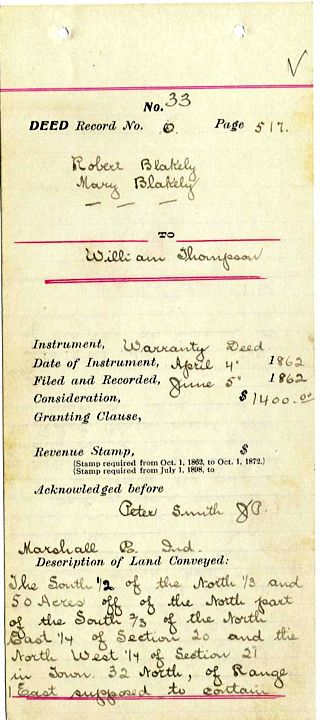 V
No. 33
DEED Record No. O. Page 517.
Robert Blakely
Mary Blakely
TO
William Thompson
Instrument, Warranty Deed.
Date of Instrument, April 4" 1862
Filed and Recorded, June 5" 1862
Consideration, $ 1400.00
Granting Clause,
Revenue Stamp, $
(Stamp required from Oct. 1, 1862, to Oct. 1, 1872.)
(Stamp required from July 1, 1898, to
Acknowledged before
Peter Smith J.P.
Marshall Co. Ind.
Description of Land Conveyed:
The South 1/2 of the North 1/3 and
50 Acres off of the North part
of the South 2/3 of the North
East 1/4 of Section 20 and the
North West 1/4 of Section 21
in Town. 32 North, of Range
1 East supposed to contain